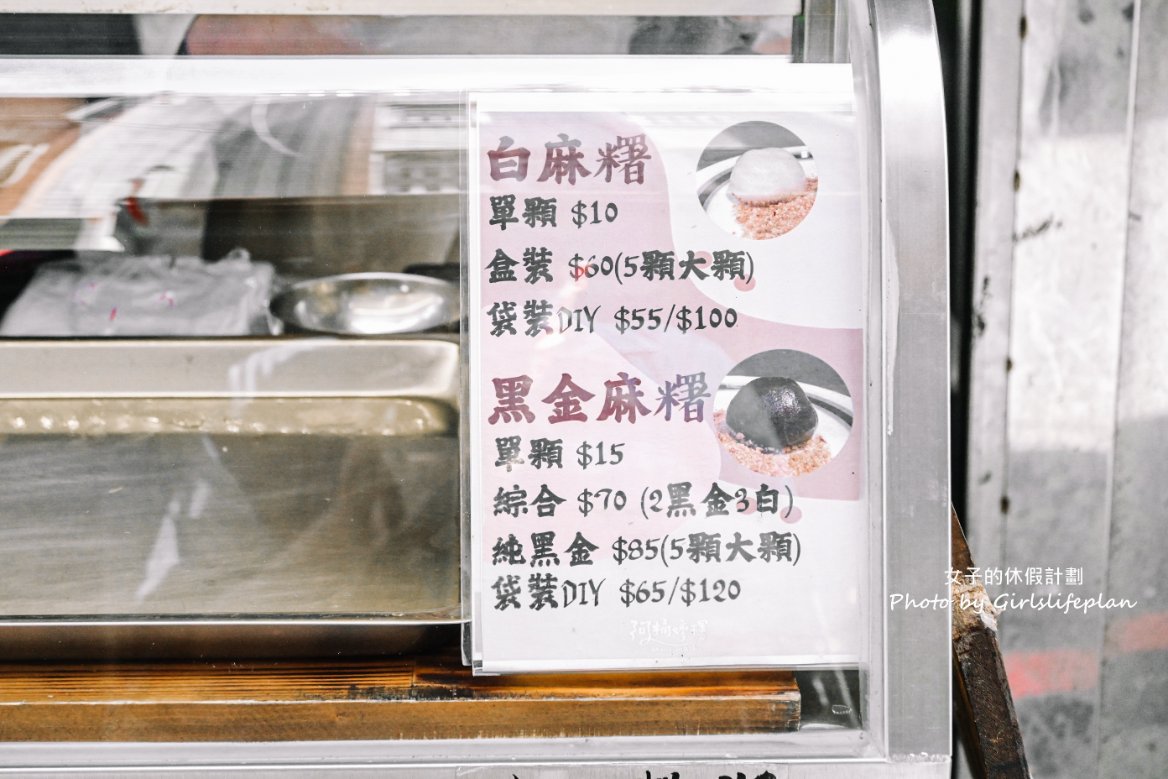 白麻糬
單顆 $10
盒裝 $60(5顆大顆)
袋裝DIY $55/$100
黑金麻糬
單顆 $15
綜合 $70 (2黑金3白)
純黑金 $85(5顆大顆)
袋裝DIY $65/$120
女子的休假計劃
Photo by Girlslifeplan